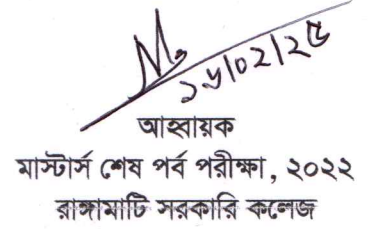 ১৬/০২/২৫
আহ্বায়ক
মাস্টার্স শেষ পর্ব পরীক্ষা, ২০২২
রাঙ্গামাটি সরকারি কলেজ